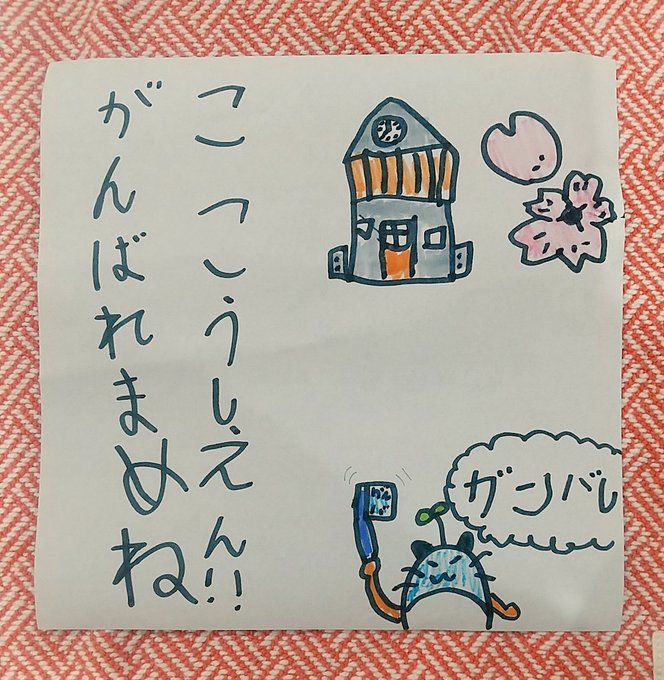 ここうしえん!!
がんばれまめね
ガンバレ